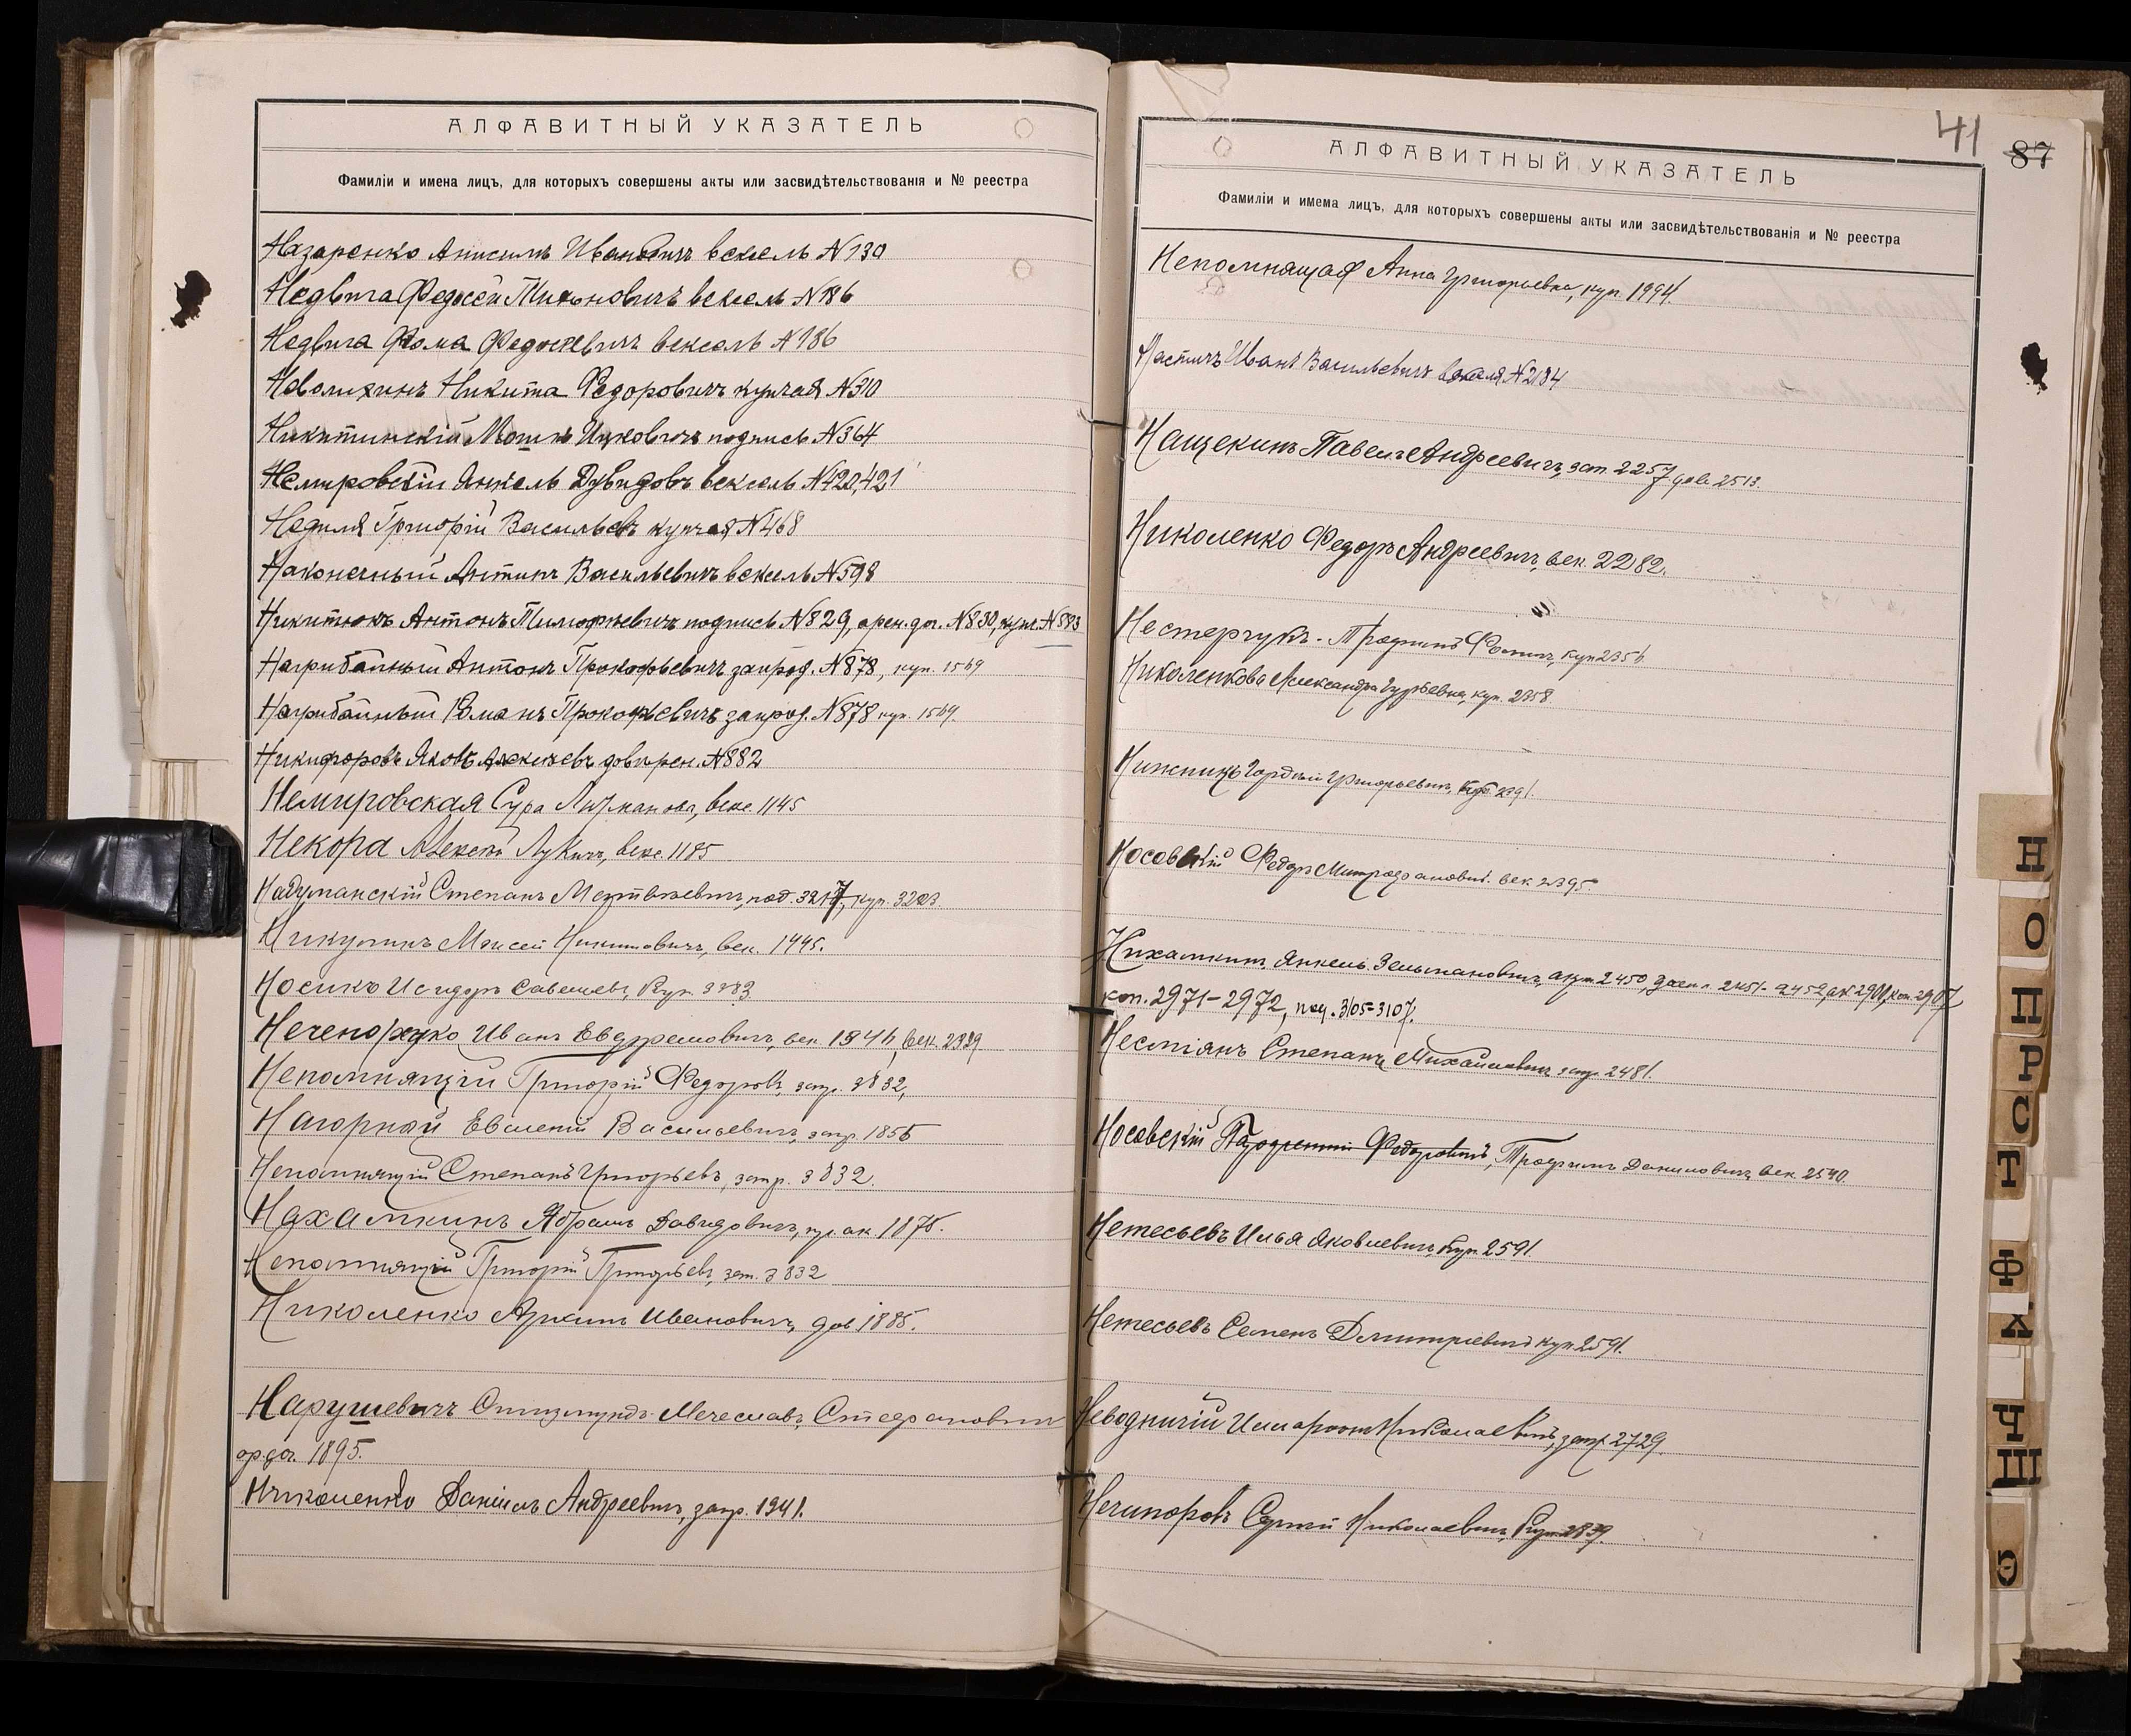 АЛФАВИТНЫЙ УКАЗАТЕЛЬ
Фамиліи и имена лицъ, для которыхъ совершены акты или засвидѣтельствованія и № реестра
Назаренко Анисимъ Ивановичъ вексель №130
Недвига Федосей вексель №186
Недвига Фома Федосѣевичъ вексель №186
Неволихинъ Никита Федоровичъ купчая №310
Никитинскій Ицковичъ подпись №364
Немировскій Янкель Дувидовъ вексель №420,421
Недиля Григорій Васильевъ купчая №468
Наконечный Антипъ Васильевичъ вексель №598
Никитюкъ Антонъ Тимофѣевичъ подпись №829, арен. дог. №830,
Нагрибайный Антонъ Прокофьевичъ запрод. №878, куп. 1569
Нагрибайный Романъ Прокофьевичъ запрод. №878 куп. 1569.
Никифоровъ Яковъ Алексѣевъ довѣрен. №882
Немировская Сура векс. 1145
Некора Алексѣй Лукичъ, векс. 1185
Надуманскій Степанъ Матвѣевичъ, куп.
Никулинъ Моисей Никитовичъ, век. 1445.
Носико Исидоръ Савельевъ, куп.
Нечепоренко Иванъ Евдокимовичъ, век. 1546, век. 2329
Непомнящій Григорій Федоровъ, запр. 3832,
Нагорный Евгеній Васильевичъ, запр. 1855
Непомнящій Степанъ Григорьевъ, запр. 3832.
Нахамкинъ Абрамъ Давидовичъ, 1875.
Непомнящій Григорій Григорьевъ, зап. 3832
Николенко Ивановичъ, дов. 1885.
Нарушевичъ Сигизмундъ-Мечеславъ Стефановичъ
1895.
Николенко Даніилъ Андреевичъ, запр. 1941.
41
87
АЛФАВИТНЫЙ УКАЗАТЕЛЬ
Фамиліи и имема лицъ, для которыхъ совершены акты или засвидѣтельствованія и № реестра
Непомнящая Анна Григорьевна, куп. 1994.
Иванъ Васильевичъ векселя №2184
Нащекинъ Павелъ Андреевичъ, зап. 2257 дов. 2513.
Николенко Федоръ Андреевичъ, век. 2282.
Нестерчукъ куп 2356
Николенкова Александра Гурьевна, куп. 2358.
Нижникъ Гордѣй Григорьевичъ, 2391.
Носовскій Федоръ век. 2395.
Нихамкинъ Янкель Зельмановичъ, 2450,
коп. 2971-2972, под. 3105-3107.
Несміянъ Степанъ Михайловичъ запр. 2481.
Носовскій Федоровичъ, Трофимъ Даниловичъ век. 2540.
Нетесьевъ Илья Яковлевичъ, куп. 2591
Нетесьевъ Семенъ Дмитріевичъ куп. 2591.
Неводничій Николаевичъ, запр. 2729.
Нечипоровъ Сергѣй Николаевичъ, куп. 2839.
Н
О
П
Р
С
Т
Ф
Х
Ч
Ш